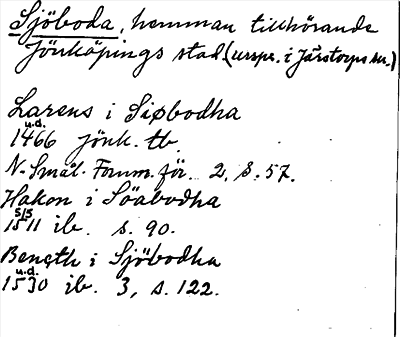 Sjöboda, hemman tillhörande
Jönköpings stad (urspr. i Järstorps sn.)
Larens i Siøbodha
u.d.
1466 Jönk. tb.
N. Smål. Fornm. för. 2, s. 57.
Håkon i Söabodha
5/5
1511 ib. s. 90.
Bencth i Sjöbodha
u.d.
1530 ib. 3, s. 122.